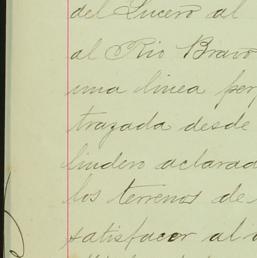 del Lucero al
al Rio Bravo
una linea per
trazada desde
lindero aclarad
los terrenos de
satisfacer al